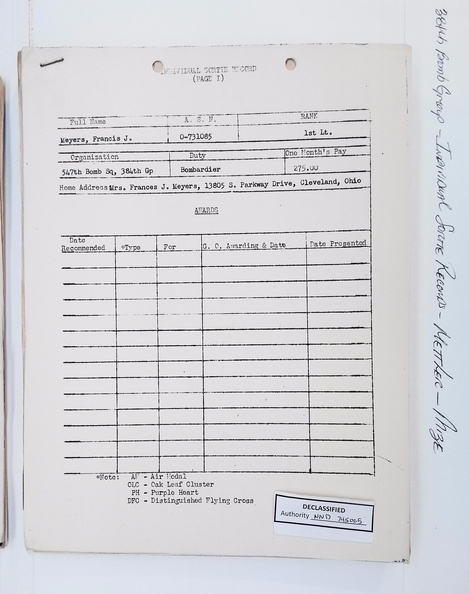 INDIVIDUAL SORTIE RECORD
(PAGE I)
Full Name A. S. N. RANK
Meyers, Francis J. O-731085 1st Lt.
Organization Duty One Month's Pay
547th Bomb Sq, 384th Gp Bombardier 275.00
Home Address Mrs. Frances J. Meyers, 13805 S. Parkway Drive, Cleveland, Ohio
AWARDS
Date Recommended *Type For G. O. Awarding & Date Date Presented
*Note: AM - Air Medal
OLC - Oak Leaf Cluster
PH - Purple Heart
DFC - Distinguished Flying Cross
DECLASSIFIED
Authority NND 745005
384th Bomb Group - Individual Sortie Records - Mettler - Mize